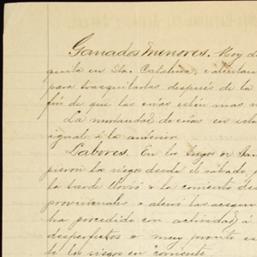 Ganados Menores. Hoy d
quila en Sta. Catalina, calculan
para trasquilarlas despues de la
fin de que las crias estén mas
La mortandad de crias en este
igual á la anterior.
Labores. En los riegos en San
pieron la riegos desde el sábado, p
la tarde llovió a la corriente des
provicionales a abrir las acequi
ha procedido con actividad á
desperfectos y muy pronto es
te los riegos en corriente